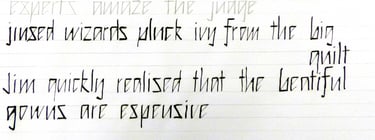 experts amaze the judge
jinxed wizards pluck ivy from the big
quilt
Jim quickly realised that the beatiful
gowns are espensive